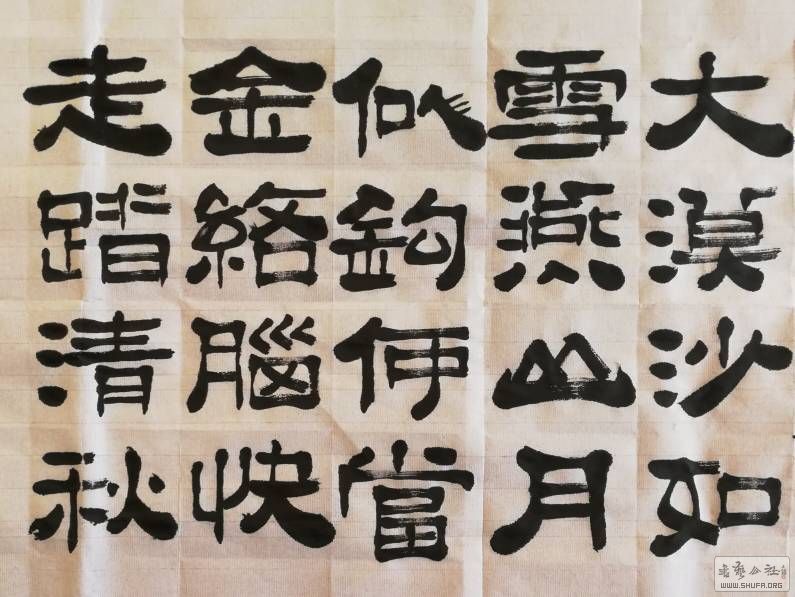 大漠沙如
雪燕山月
似鈎何當
金絡腦快
走踏清秋
書藝公社
WWW.SHUFA.ORG